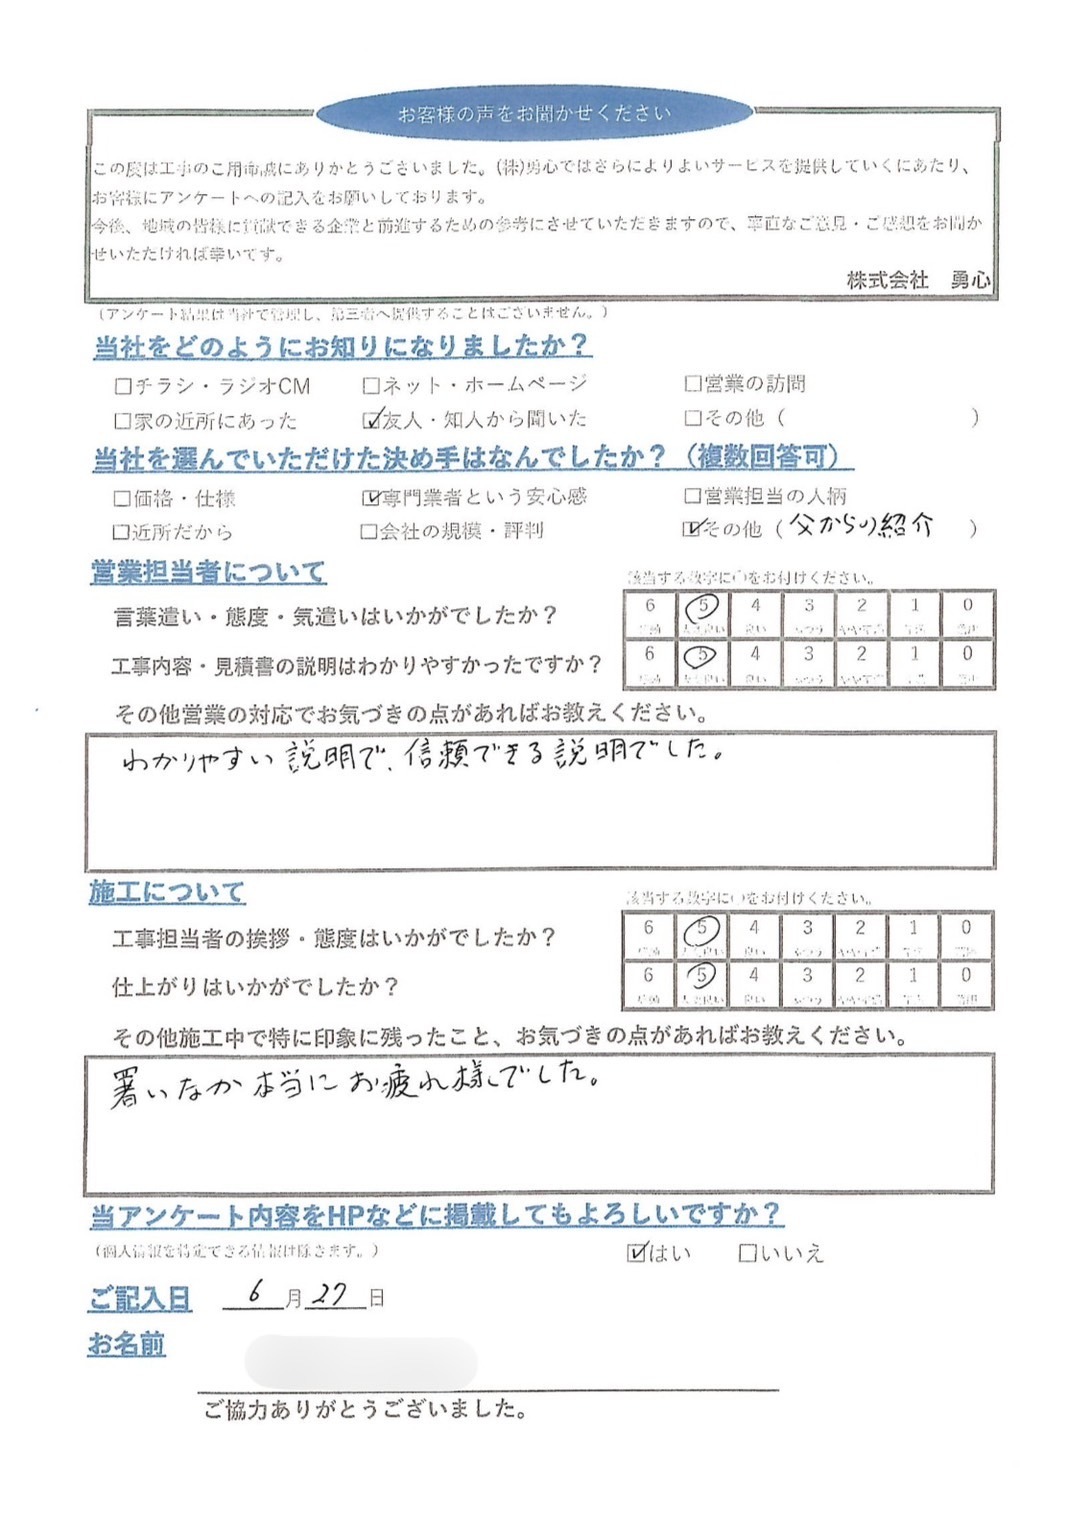 お客様の声をお聞かせください
この度は工事のご用命誠にありがとうございました。(株)勇心ではさらによりよいサービスを提供していくにあたり、
お客様にアンケートへの記入をお願いしております。
今後、地域の皆様に貢献できる企業と前進するための参考にさせていただきますので、率直なご意見・ご感想をお聞か
せいただければ幸いです。
株式会社　勇心
（アンケート結果は当社で管理し、第三者へ提供することはございません。）
当社をどのようにお知りになりましたか？
□チラシ・ラジオCM □ネット・ホームページ □営業の訪問
□家の近所にあった ☑友人・知人から聞いた □その他（　　　）
当社を選んでいただけた決め手はなんでしたか？（複数回答可）
□価格・仕様 ☑専門業者という安心感 □営業担当の人柄
□近所だから □会社の規模・評判 ☑その他（父からの紹介）
営業担当者について
該当する数字に〇をお付けください。
言葉遣い・態度・気遣いはいかがでしたか？ 6 5 4 3 2 1 0
工事内容・見積書の説明はわかりやすかったですか？ 6 5 4 3 2 1 0
その他営業の対応でお気づきの点があればお教えください。
わかりやすい説明で、信頼できる説明でした。
施工について
該当する数字に〇をお付けください。
工事担当者の挨拶・態度はいかがでしたか？ 6 5 4 3 2 1 0
仕上がりはいかがでしたか？ 6 5 4 3 2 1 0
その他施工中で特に印象に残ったこと、お気づきの点があればお教えください。
暑いなか本当にお疲れ様でした。
当アンケート内容をHPなどに掲載してもよろしいですか？
（個人情報を特定できる情報は除きます。） ☑はい □いいえ
ご記入日 6月27日
お名前
ご協力ありがとうございました。